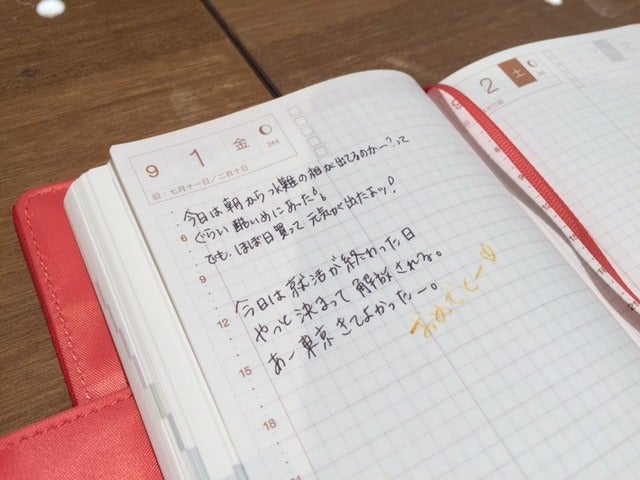 9 1 金 244
旧: 七月十一日/二百十日
今日は朝から水難の相が出てるのかー?って
ぐらい酷いめにあった。
でも、ほぼ日買って元気が出たよッ!
今日は就活が終わった日
やっと決まって解放される。
あー東京きてよかったー。
おめでとー♡
6
9
12
15
18
9 2 土